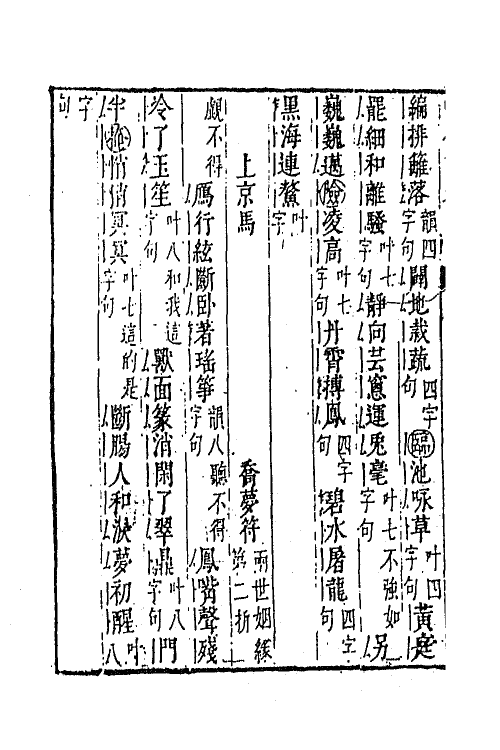 編排籬落韻四字句闢地栽蔬四字句臨池咏草叶四字句黃庭
罷細和離騷叶七字句靜向芸窻運兎毫叶七字句不強如另
巍巍邁險凌高叶七字句丹霄搏鳳四字句碧水屠龍四字句
黑海連鰲叶字
上京馬 喬夢符兩世姻緣第二折
覷不得鴈行絃斷臥著瑤箏韻八字句聽不得鳳嘴聲殘
冷了玉笙叶八字句和我這獸面篆消閑了翠鼎叶八字句門
半掩悄悄冥冥叶七字句這的是斷腸人和淚夢初醒叶八
字句